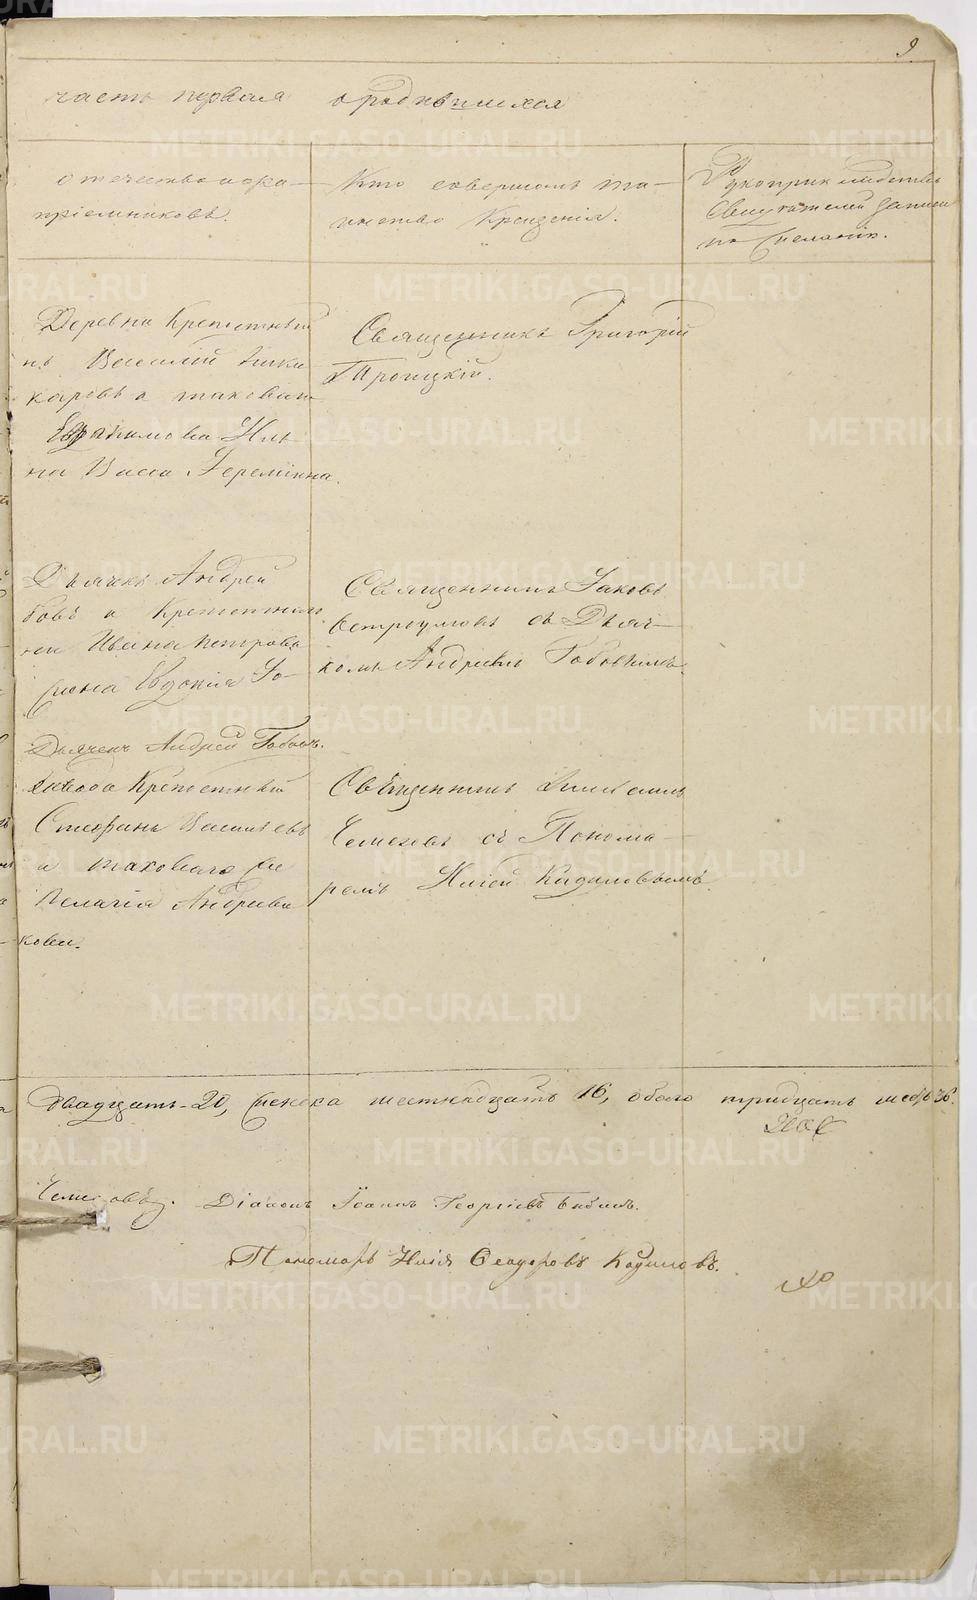 9
часть первая о родившихся
отечество и фа-
приемниковъ.
Кто совершалъ та-
инство Крещенія.
Рукоприкладство
Свидѣтелей записи
по желанію.
Деревни Крепостный
Василій
каровъ и таковаго
Ефимова
на Васса Еремѣина.
Священникъ Григорій
Троицкій.
Дьячекъ Андрей
бовъ и Крепостнаго
Ивана Петрова
жена Евдокія
Священникъ Іаковъ
Остроумовъ съ Дьяч-
комъ Андреемъ Бобовымъ.
Дьячекъ Андрей Бобовъ.
завода Крепостный
Стефанъ Васильевъ
и таковаго же
Пелагія Андреева
кова.
Священникъ
съ Понома-
ремъ Иліей Кадиловымъ.
двадцать 20, женска шестнадцать 16, обоего тридцать шесть 36.
Діаконъ Іоаннъ Георгіевъ Бабинъ.
Пономарь Илія Феодоровъ Кадиловъ.
METRIKI.GASO-URAL.RU